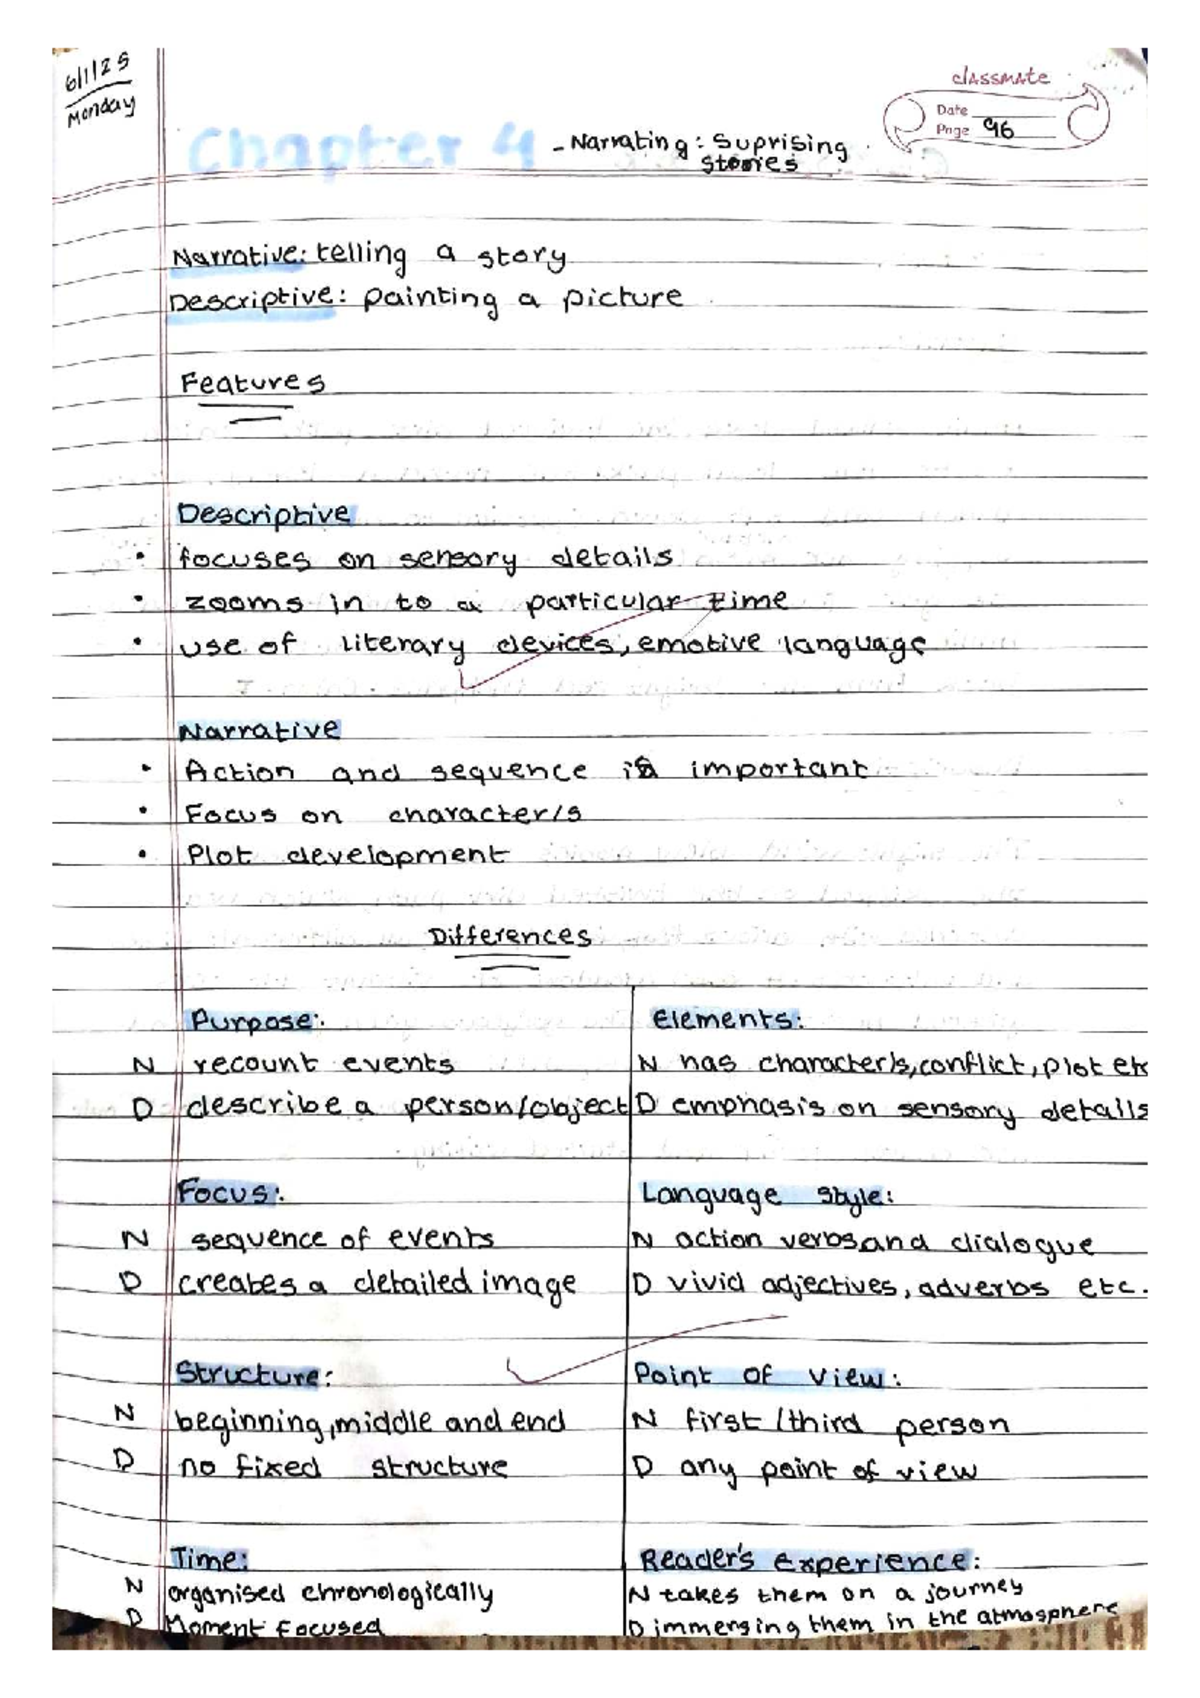 6/1/25
Monday
classmate
Date
Page 96
Chapter 4 - Narrating: Suprising
stories
Narrative: telling a story
Descriptive: painting a picture
Features
Descriptive
• focuses on sensory details
• zooms in to a particular time
• use of literary devices, emotive language
Narrative
• Action and sequence is important
• Focus on character/s
• Plot development
Differences
Purpose:
N recount events
D describe a person/object
Elements:
N has character/s, conflict, plot etc
D emphasis on sensory details
Focus:
N sequence of events
D creates a detailed image
Language style:
N action verbs and dialogue
D vivid adjectives, adverbs etc.
Structure:
N beginning, middle and end
D no fixed structure
Point of view:
N first/third person
D any point of view
Time:
N organised chronologically
D Moment focused
Reader's experience:
N takes them on a journey
D immersing them in the atmosphere